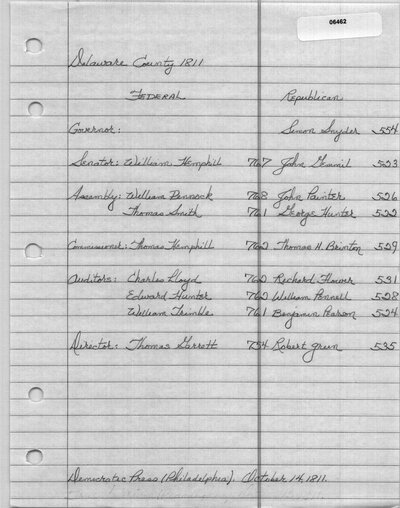 06462
Delaware County 1811
FEDERAL Republican
Governor: Simon Snyder 554
Senator: William Hemphill 767 John Gemmil 523
Assembly: William Pennock 768 John Painter 526
Thomas Smith 761 George Hunter 522
Commissioner: Thomas Hemphill 762 Thomas H. Brinton 529
Auditors: Charles Lloyd 760 Richard Flower 531
Edward Hunter 762 William Pennell 528
William Trimble 761 Benjamin Pearson 524
Director: Thomas Garrett 754 Robert Green 535
Democratic Press (Philadelphia). October 14, 1811.